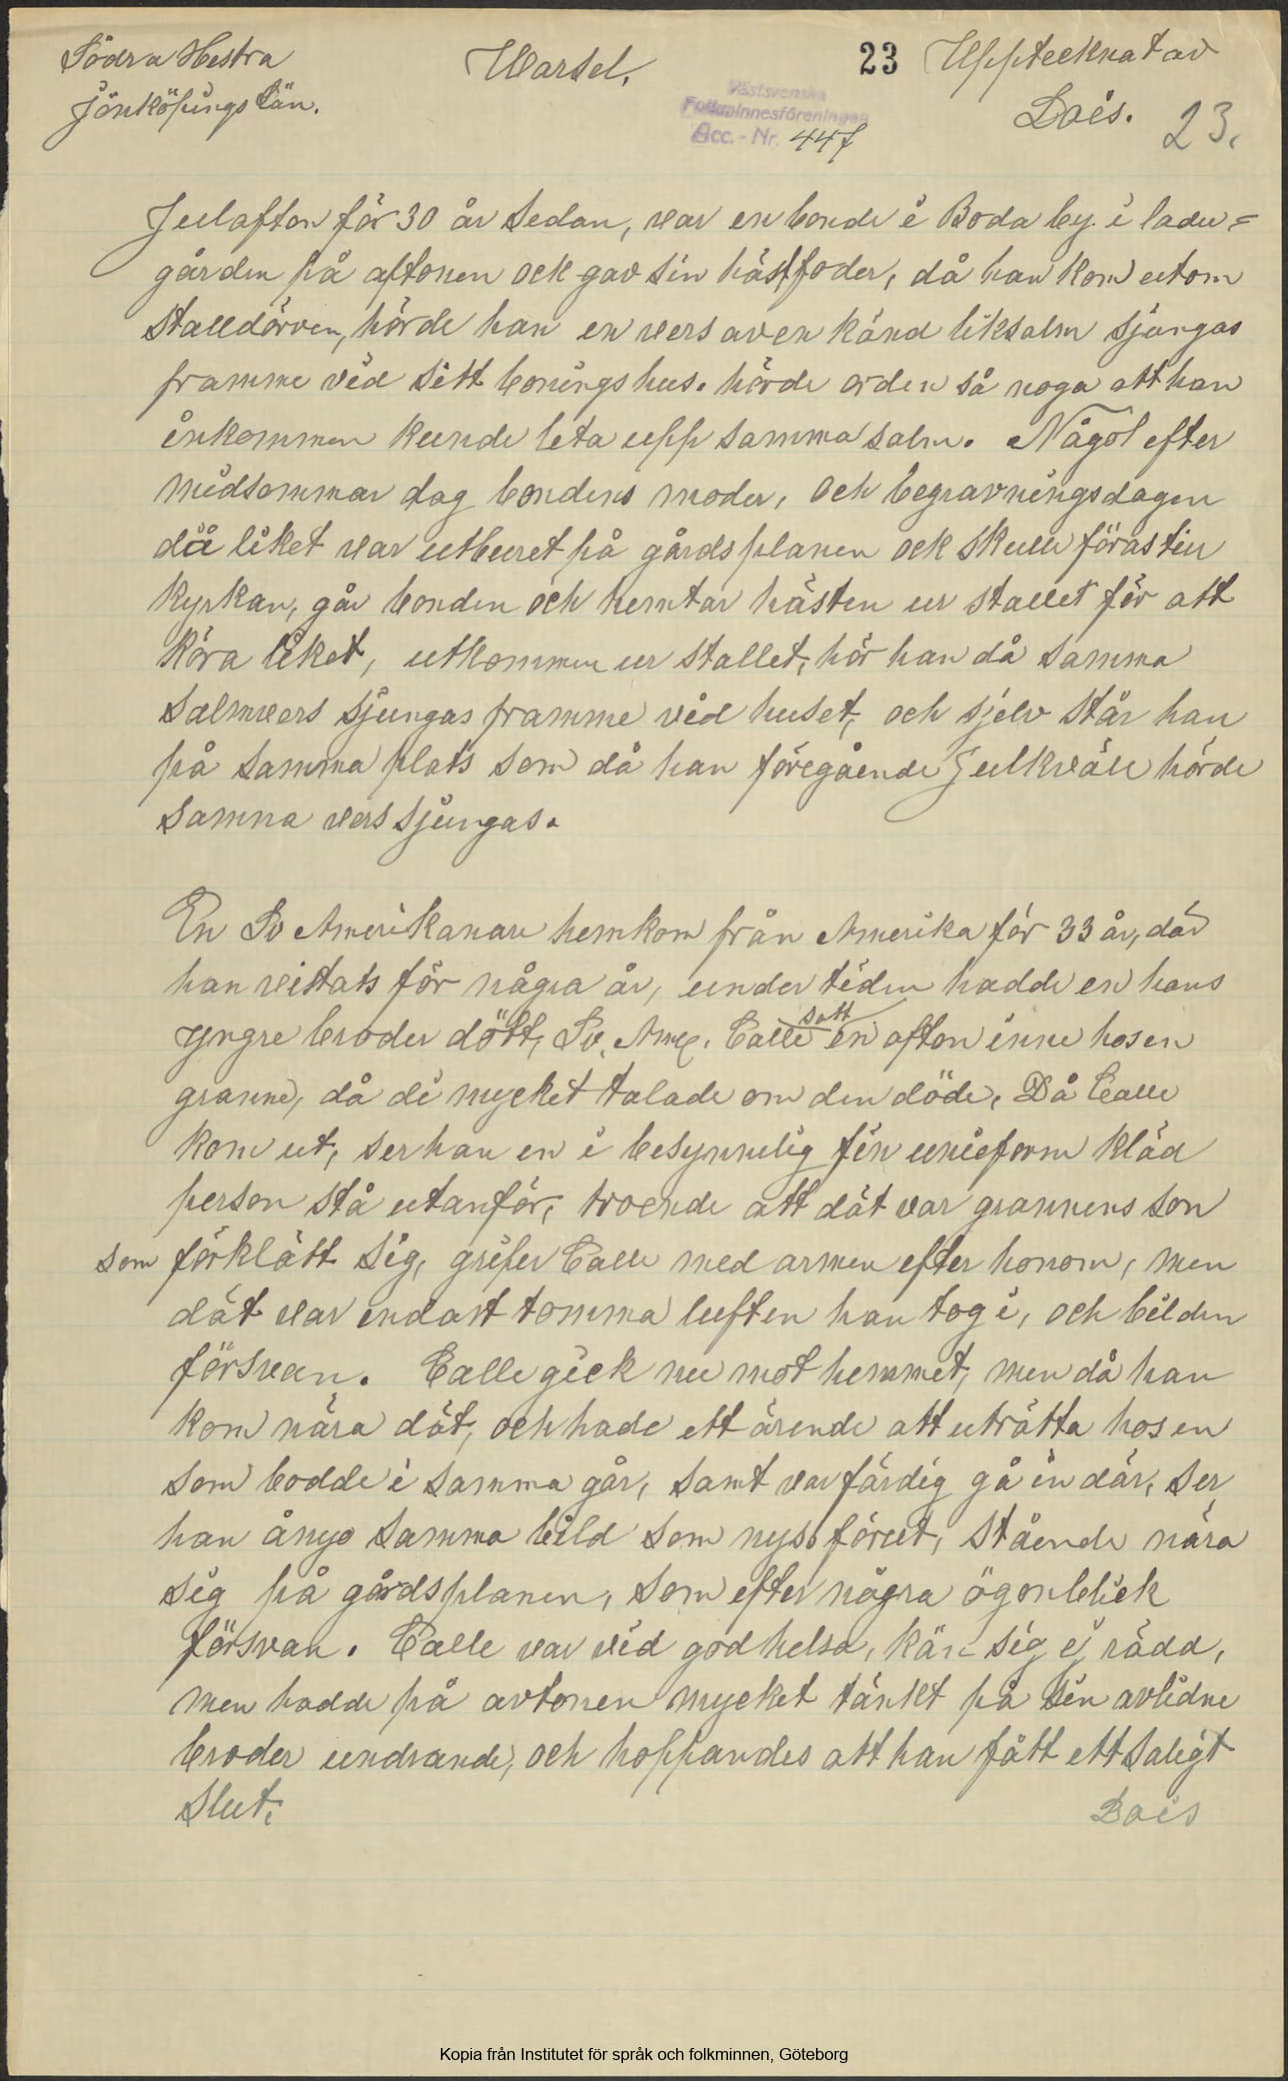 Södra Hestra
Jönköpings Län.
Warsel.
23 Upptecknat av
Dais. 23.
Västsvenska
Folkminnesföreningen
Acc. - Nr. 447
Julafton för 30 år sedan, var en bonde i Boda by i ladu=
gården på aftonen ock gav sin häst foder, då han kom utom
stalldörren, hörde han en vers av en känd liksalm sjungas
framme vid sitt boningshus. hörde orden så noga att han
inkommen kunde leta upp samma salm. Någöt efter
midsommar dog bondens moder, och begravningsdagen
då liket var utburet på gårdsplanen ock skulle föras till
kyrkan, går bonden och hemtar hästen ur stallet för att
köra liket, utkommen ur stallet, hör han då samma
salmvers sjungas framme vid huset, och sjelv står han
på samma plats som då han föregående julkväll hörde
samma vers sjungas.
En Sv Amerikanare hemkom från Amerika för 33 år, där
han vistats för några år, under tiden hadde en hans
yngre broder dött, Sv. Amr. Calle satt en afton inne hos en
granne, då di mycket talade om den döde, Då Calle
kom ut, ser han en i besynnelig fin unieform kläd
person stå utanför, troende att dät var grannens son
som förklätt sig, griper Calle med armen efter honom, men
dät var endast tomma luften han tog i, och bilden
försvan. Calle gick nu mot hemmet, men då han
kom nära dät, och hade ett ärende att uträtta hos en
som bodde i samma går, samt var färdig gå in där, ser
han ånyo samma bild som nyss förut, stående nära
sig på gårdsplanen, som efter några ögonblick
försvan. Calle var vid god helsa, kän sig ej rädd,
men hadde på avtonen mycket tänkt på sin avlidne
broder undrande, och hoppandes att han fått ett saligt
slut.
Dais
Kopia från Institutet för språk och folkminnen, Göteborg